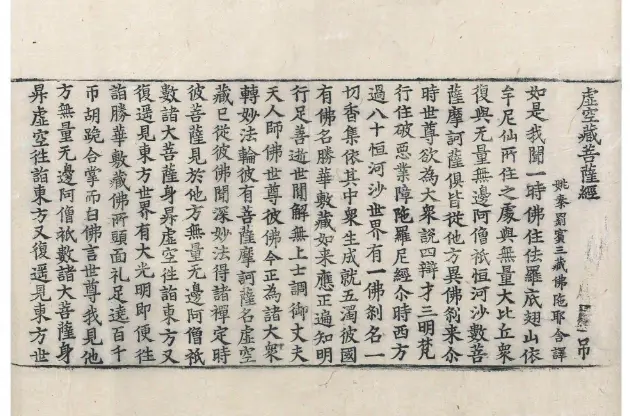 虛空藏菩薩經 弔
姚秦罽賓三藏佛陁耶舍譯
如是我聞一時佛住佉羅底翅山依
牟尼仙所住之處與無量大比丘衆
復與无量無邊阿僧祇恒河沙數菩
薩摩訶薩俱皆從他方異佛刹来尒
時世尊欲為大衆說四辯才三明梵
行住破惡業障陁羅尼經尒時西方
過八十恒河沙世界有一佛刹名一
切香集依其中衆生成就五濁彼國
有佛名勝華敷藏如来應正遍知明
行足善逝世閒解無上士調御丈夫
天人師佛世尊彼佛今正為諸大衆
轉妙法輪彼有菩薩摩訶薩名虛空
藏已從彼佛聞深妙法得諸禪定時
彼菩薩見於他方無量无邊阿僧祇
數諸大菩薩身昇虛空往詣東方又
復遥見東方世界有大光明即便往
詣勝華敷藏佛所頭面礼足遶百千
帀胡跪合掌而白佛言世尊我見他
方無量无邊阿僧祇數諸大菩薩身
昇虛空往詣東方又復遥見東方世